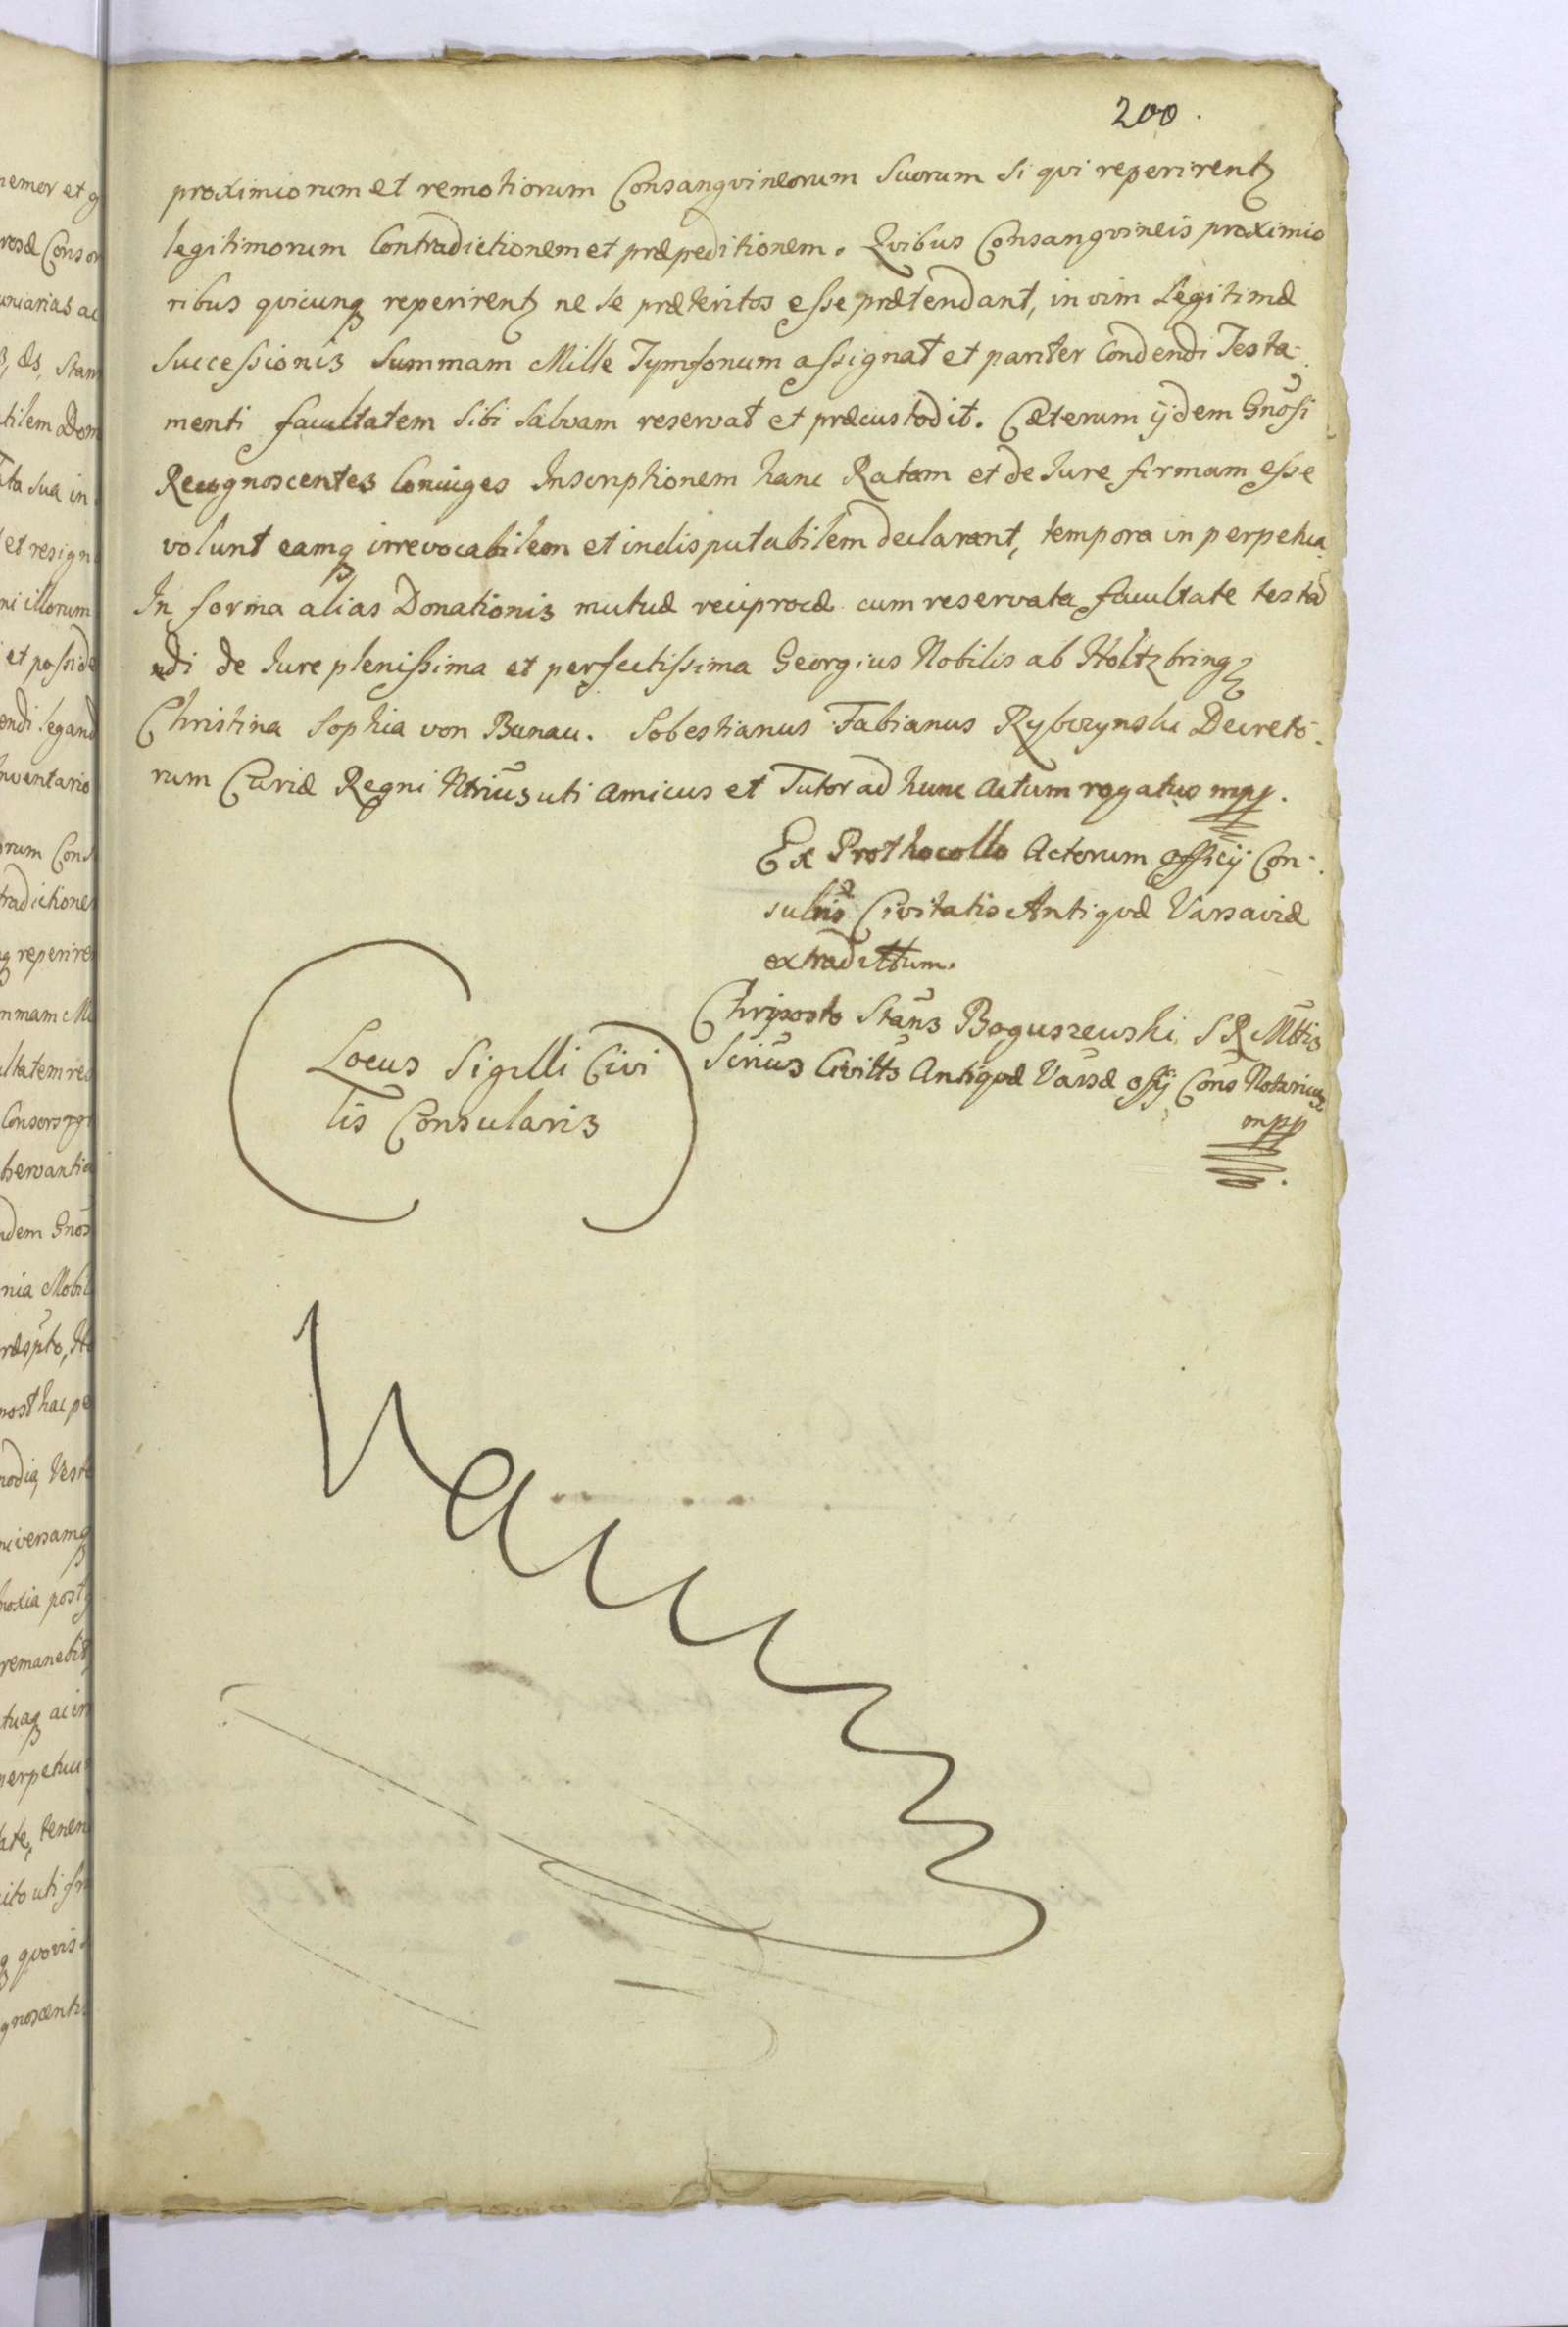 200.
proximiorum et remotiorum Consangvineorum Suorum si qvi reperirent
legitimorum Contradictionem et præpeditionem. Qvibus Consangvineis proximio
ribus qvicunq reperirent ne se præteritos esse prætendant, in vim Legitimæ
Successionis Summam Mille Tymfonum assignat et pariter Condendi Testa-
menti facultatem Sibi Salvam reservat et præcustodit. Cæterum ijdem Gnosi
Recognoscentes Coniuges Inscriptionem hanc Ratam et de Iure firmam esse
volunt eamq irrevocabilem et indisputabilem declarant, tempora in perpetua.
In forma alias Donationis mutuæ reciprocæ cum reservata facultate testa
ndi de Iure plenissima et perfectissima Georgius Nobilis ab Holtzbring
Christina Sophia von Bunau. Sobestianus Fabianus Rybczynski Decreto-
rum Curiæ Regni Ntrius uti Amicus et Tutor ad hunc Actum rogatus mpp.
Ex Prothocollo Actorum Officij Con-
sulris Civitatis Antiqvæ Varsaviæ
extraditum.
Chrysosto Stans Boguszewski S R Mttis
Scrius Civilts Antiqvæ Varsæ offij Cons Notarius
mpp
Locus Sigilli Civi
lis Consularis
nemor et g
rosæ Conso
uniarias ac
æs, Stan
tilem Dom
ta sua in
et resign
ni illorum
et posside
endi legand
nventario
orum Cons
tradictione
q reperire
mmam Mi
ultatem re
Consors
bservantia
dem Gnos
nia Mobil
ræspto, H
post hac pe
modia, Vest
niversamq
noxia post
remanebit
tuaq ac in
perpetuu
ate, tenen
ito uti fr
q qvovis
gnoscenti